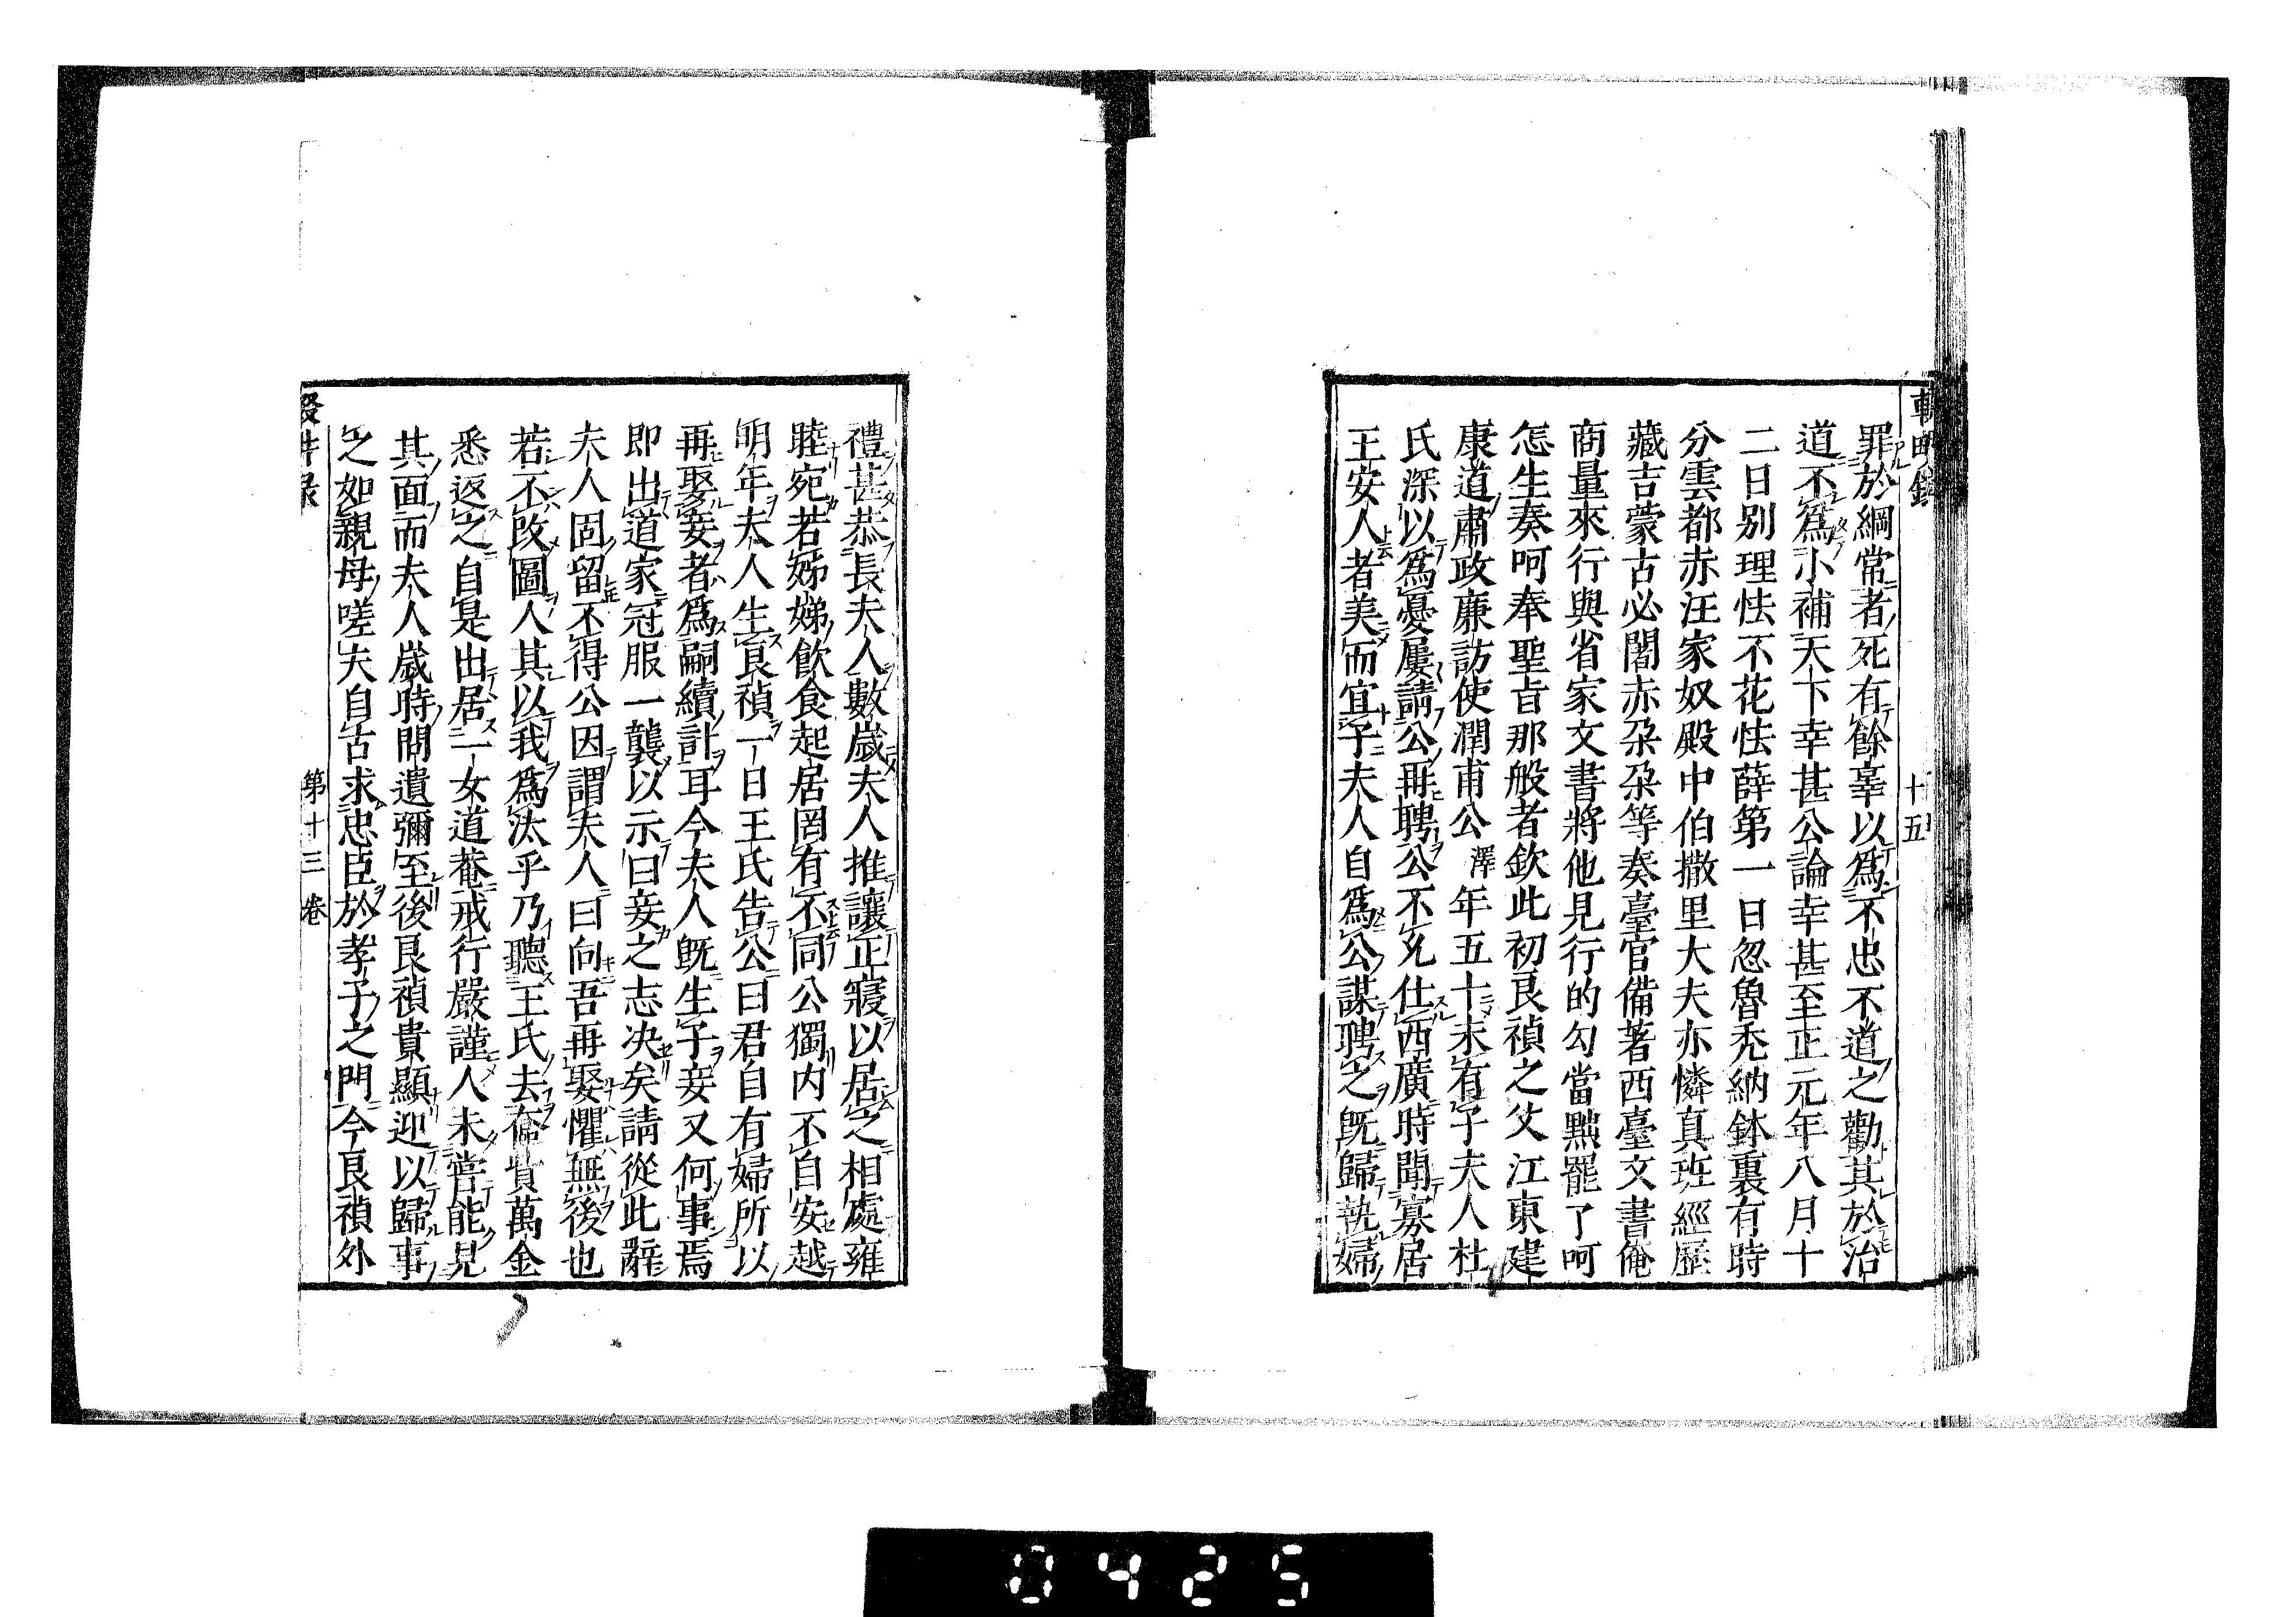 輟畊錄
十五
罪於綱常者死有餘辜以爲不忠不道之勸其於治
道不爲小補天下幸甚公論幸甚至正元年八月十
二日别理怯不花怯薛第一日忽魯禿納鉢裏有時
分雲都赤汪家奴殿中伯撒里大夫亦憐真班經歷
藏吉蒙古必闍赤朶朶等奏臺官備著西臺文書俺
商量來行與省家文書將他見行的勾當黜罷了呵
怎生奏呵奉聖旨那般者欽此初良禎之父江東建
康道肅政廉訪使潤甫公澤年五十未有子夫人杜
氏深以爲憂屢請公再聘公不允仕西廣時聞寡居
王安人者美而宜子夫人自爲公謀聘之既歸執婦
禮甚恭長夫人數歲夫人推讓正寢以居之相處雍
睦宛若姊娣飲食起居罔有不同公獨内不自安越
明年夫人生良禎一日王氏告公曰君自有婦所以
再娶妾者爲嗣續計耳今夫人既生子妾又何事焉
即出道家冠服一襲以示曰妾之志决矣請從此辭
夫人固留不得公因謂夫人曰向吾再娶懼無後也
若不改圖人其以我爲汰乎乃聽王氏去奩貲萬金
悉返之自是出居一女道菴戒行嚴謹人未嘗能見
其面而夫人歲時問遺彌至後良禎貴顯迎以歸事
之如親母嗟夫自古求忠臣於孝子之門今良禎外
第十三卷